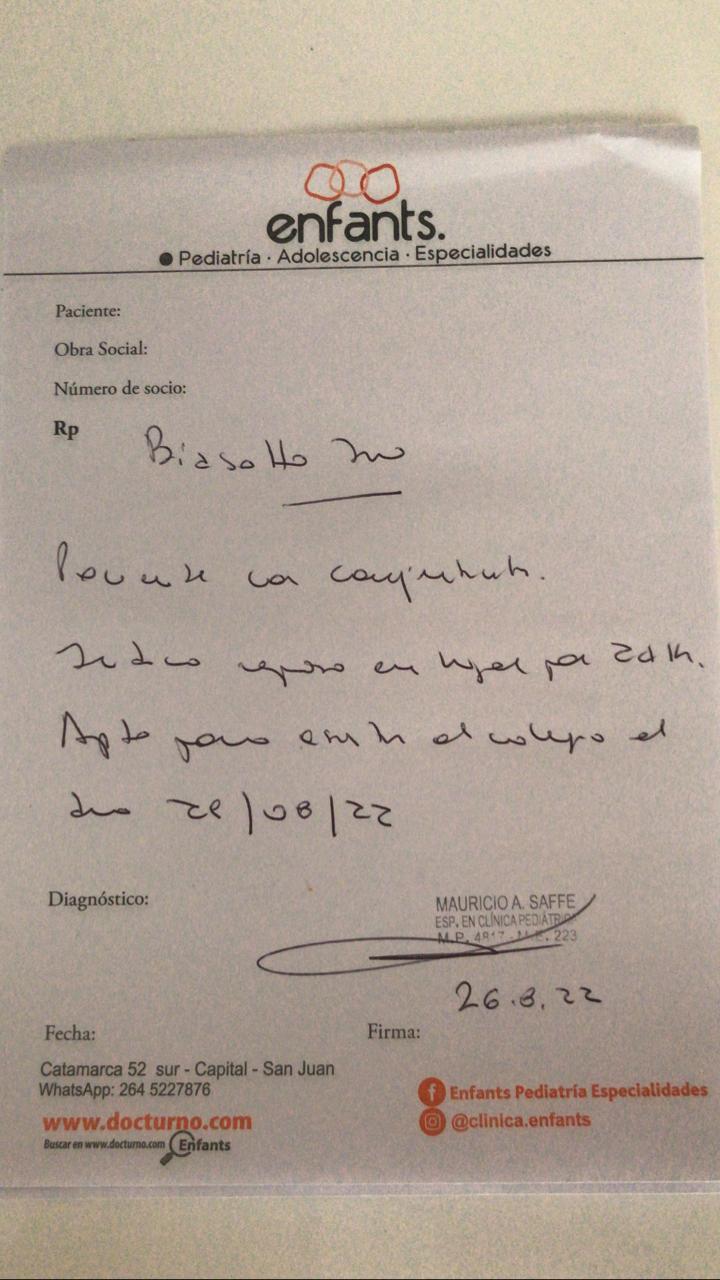 enfants.
Pediatría · Adolescencia · Especialidades
Paciente:
Obra Social:
Número de socio:
Rp
Biasotto
con conjuntivitis.
reposo en hogar por
Apto para asistir al colegio el
dia 29/08/22
Diagnóstico:
MAURICIO A. SAFFE
ESP. EN CLÍNICA PEDIÁTRICA
M.P. 223
26.8.22
Fecha:
Firma:
Catamarca 52 sur - Capital - San Juan
WhatsApp: 264 5227876
Enfants Pediatría Especialidades
www.docturno.com
@clinica.enfants
Buscar en www.docturno.com Enfants